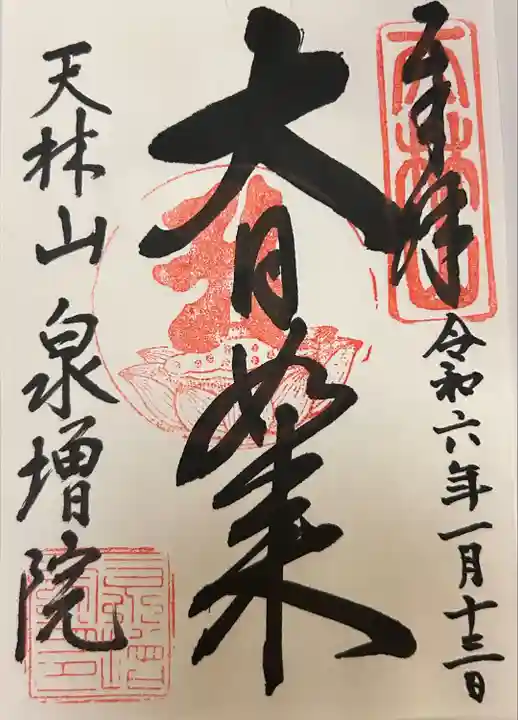 奉拝
令和六年一月十三日
大日如来
天林山 泉増院